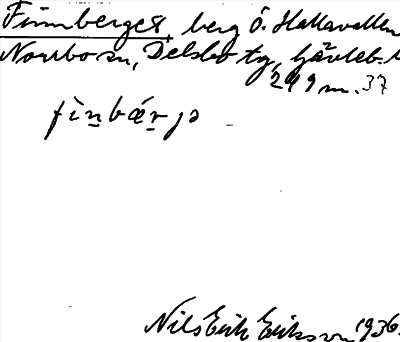 Finnberget, berg Ö. Hallavallen
Norrbo sn, Delsbo tg, Gävleb. l
249 m. 37
fìn̠bǽr̠jə
Nils Erik Eriksson 1936.